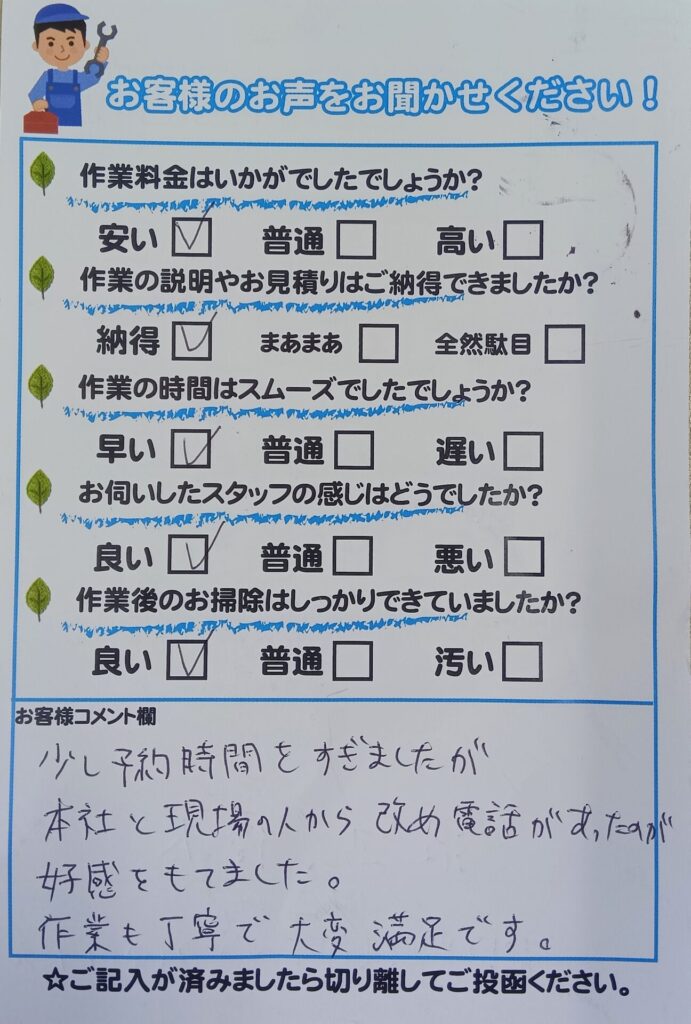 お客様のお声をお聞かせください！
作業料金はいかがでしたでしょうか？
安い 普通 高い
作業の説明やお見積りはご納得できましたか？
納得 まあまあ 全然駄目
作業の時間はスムーズでしたでしょうか？
早い 普通 遅い
お伺いしたスタッフの感じはどうでしたか？
良い 普通 悪い
作業後のお掃除はしっかりできていましたか？
良い 普通 汚い
お客様コメント欄
少し予約時間をすぎましたが
本社と現場の人から改め電話があったのが
好感をもてました。
作業も丁寧で大変満足です。
☆ご記入が済みましたら切り離してご投函ください。